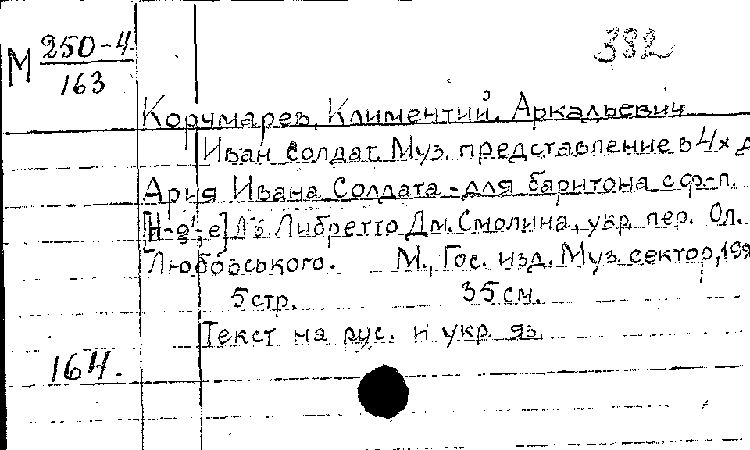 М 250-4
163
382
Корчмарев, Климентий Аркадьевич
Иван Солдат. Муз. представление в 4х д
Ария Ивана Солдата - для баритона с ф-п.
Либретто Дм. Смолина, укр. пер. Ол.
Любовського. М., Гос. изд. Муз. сектор, 19
5 стр. 35 см.
Текст на рус. и укр. яз.
164.